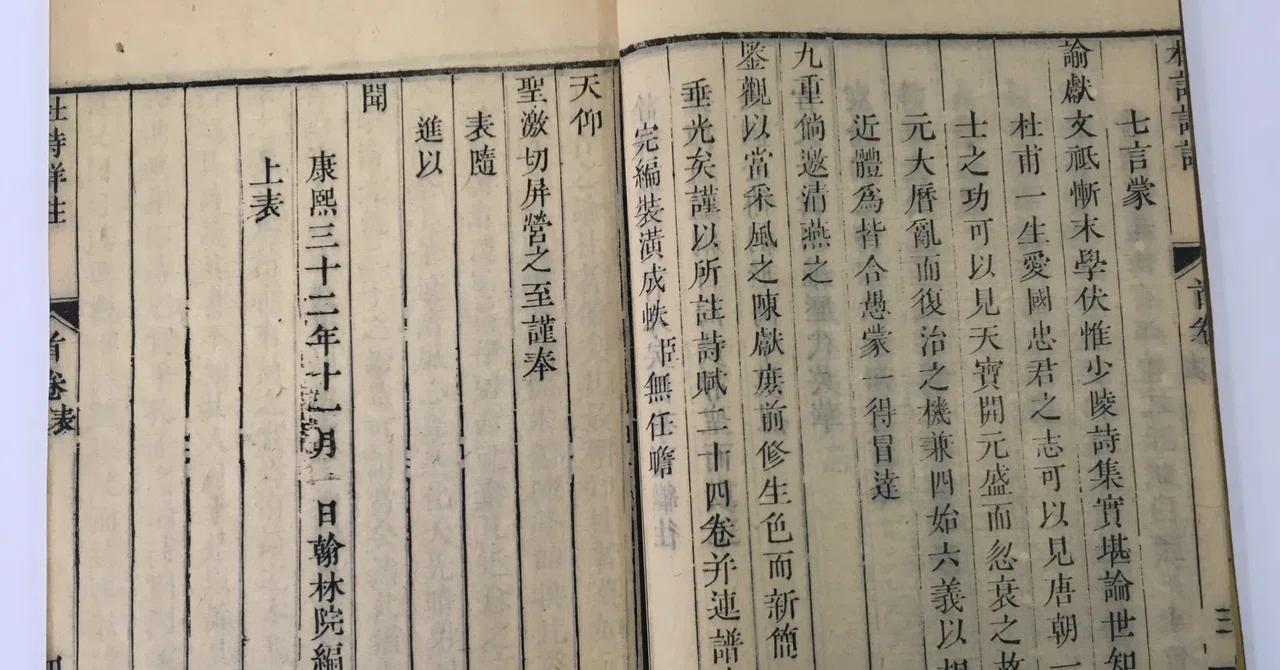 七言蒙
諭獻文祗慚末學伏惟少陵詩集實堪論世知
杜甫一生愛國忠君之志可以見唐朝一
士之功可以見天寶開元盛而忽衰之故
元大曆亂而復治之機兼四始六義以相
近體為皆合愚蒙一得冒達
九重倘邀清燕之
鉴觀以當采風之陳獻庶前修生色而新簡
垂光矣謹以所註詩賦二十四卷并連譜
完編裝潢成帙 無任瞻
天仰
聖激切屏營之至謹奉
表隨
進以
聞
康熙三十二年十一月 日翰林院編
上表
杜詩詳註
首卷 表